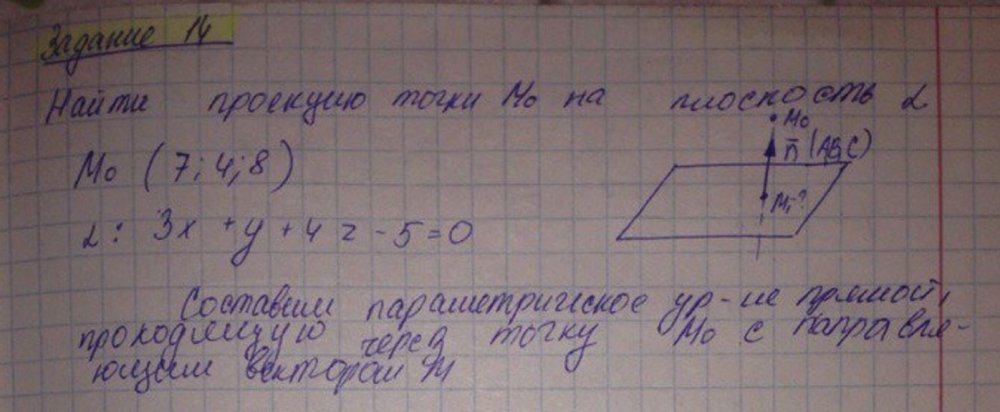 Задание 14
Найти проекцию точки M₀ на плоскость α
M₀
n̄ (A,B,C)
M₀ (7; 4; 8)
M₁?
α: 3x + y + 4z - 5 = 0
Составим параметрическое ур-ие прямой,
проходящую через точку M₀ с направля-
ющим вектором n